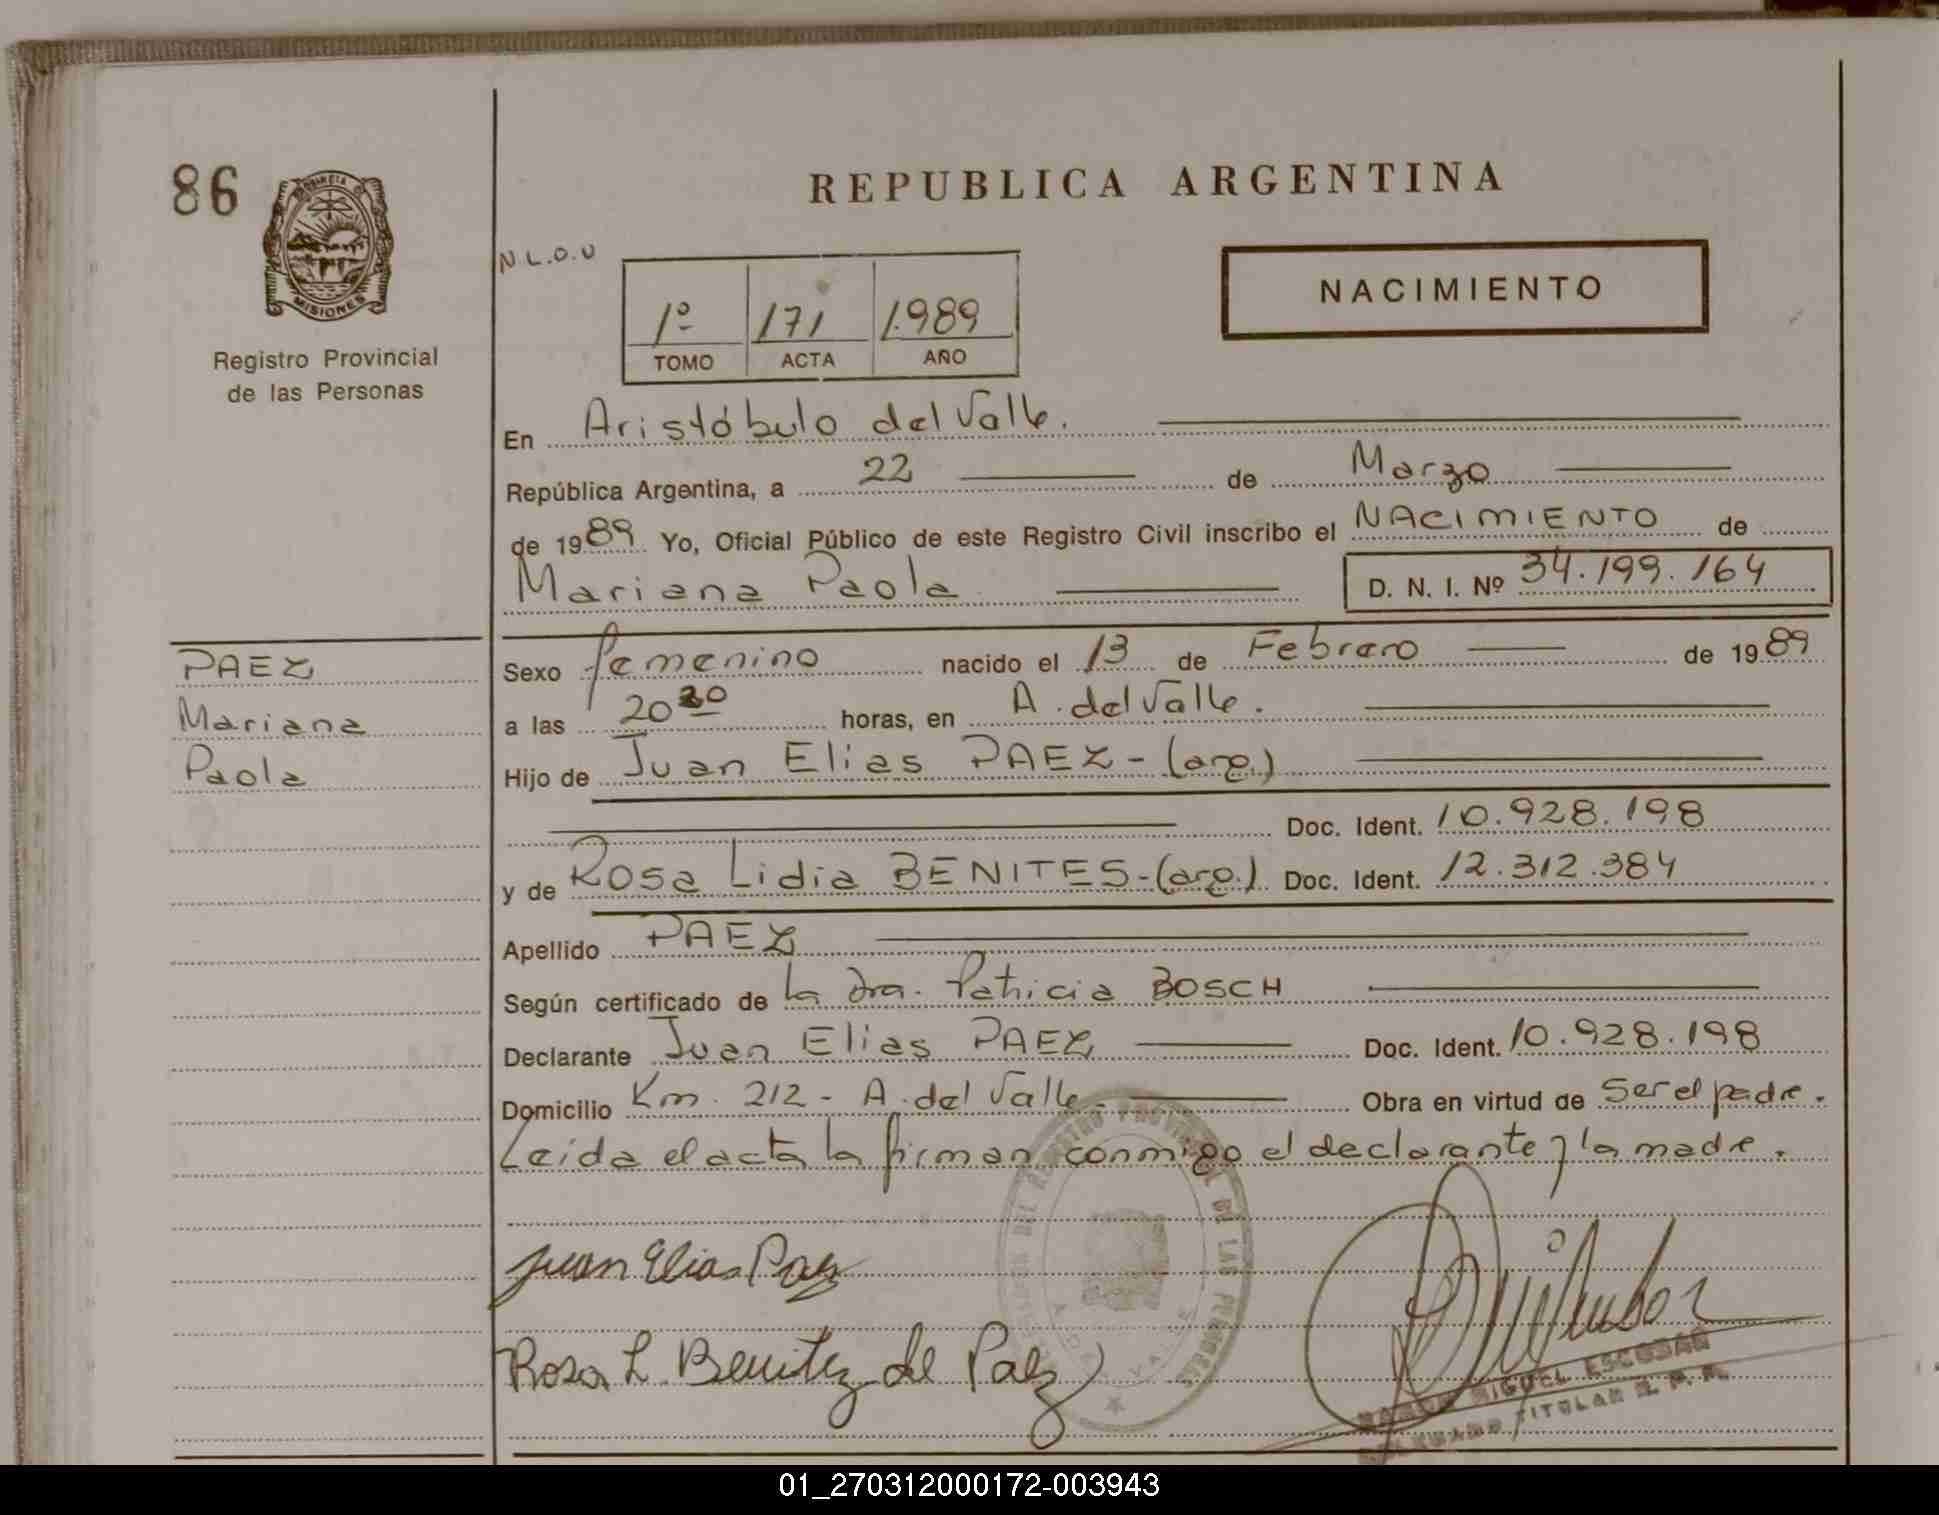 86
REPUBLICA ARGENTINA
PROVINCIA D
MISIONES
Registro Provincial
de las Personas
N.L.O.U
NACIMIENTO
1º 171 1.989
TOMO ACTA AÑO
En Aristóbulo del Valle.
República Argentina, a 22 de Marzo
de 1989 Yo, Oficial Público de este Registro Civil inscribo el NACIMIENTO de
Mariana Paola D. N. I. Nº 34.199.164
PAEZ
Mariana
Paola
Sexo femenino nacido el 13 de Febrero de 1989
a las horas, en A. del Valle.
Hijo de Juan Elias PAEZ - (arg.)
Doc. Ident. 10.928.198
y de Rosa Lidia BENITES - (arg.) Doc. Ident. 12.312.384
Apellido PAEZ
Según certificado de la Dra. Patricia BOSCH
Declarante Juan Elias PAEZ Doc. Ident. 10.928.198
Domicilio Km. 212 - A. del Valle - Obra en virtud de ser el padre.
Leída el acta la firman conmigo el declarante y la madre.
Juan Elias Paez
Rosa L. Benitez de Paez
DEL REGISTRO PROVINCIAL DE LAS PERSONAS
A. DEL VALLE
MIGUEL ESCOBAR
TITULAR R. P. P.
01_270312000172-003943